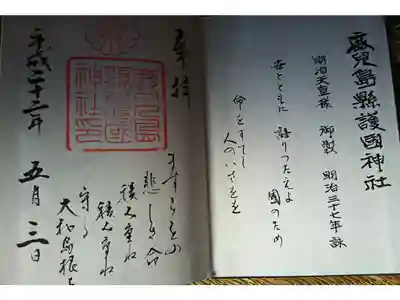 鹿兒島縣護國神社
明治天皇様 御製 明治三十七年詠
世とともに 語りつたえよ 國のため
命をすてし 人のいさをを
奉拝
鹿児島
縣護國
神社印
ますらをの
悲しき命
積み重ね
積み重ね
守る
大和島根を
平成二十二年 五月 三日